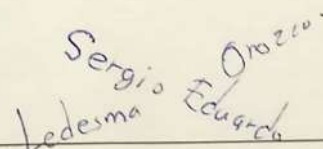 Sergio Orozco.
Ledesma Eduardo